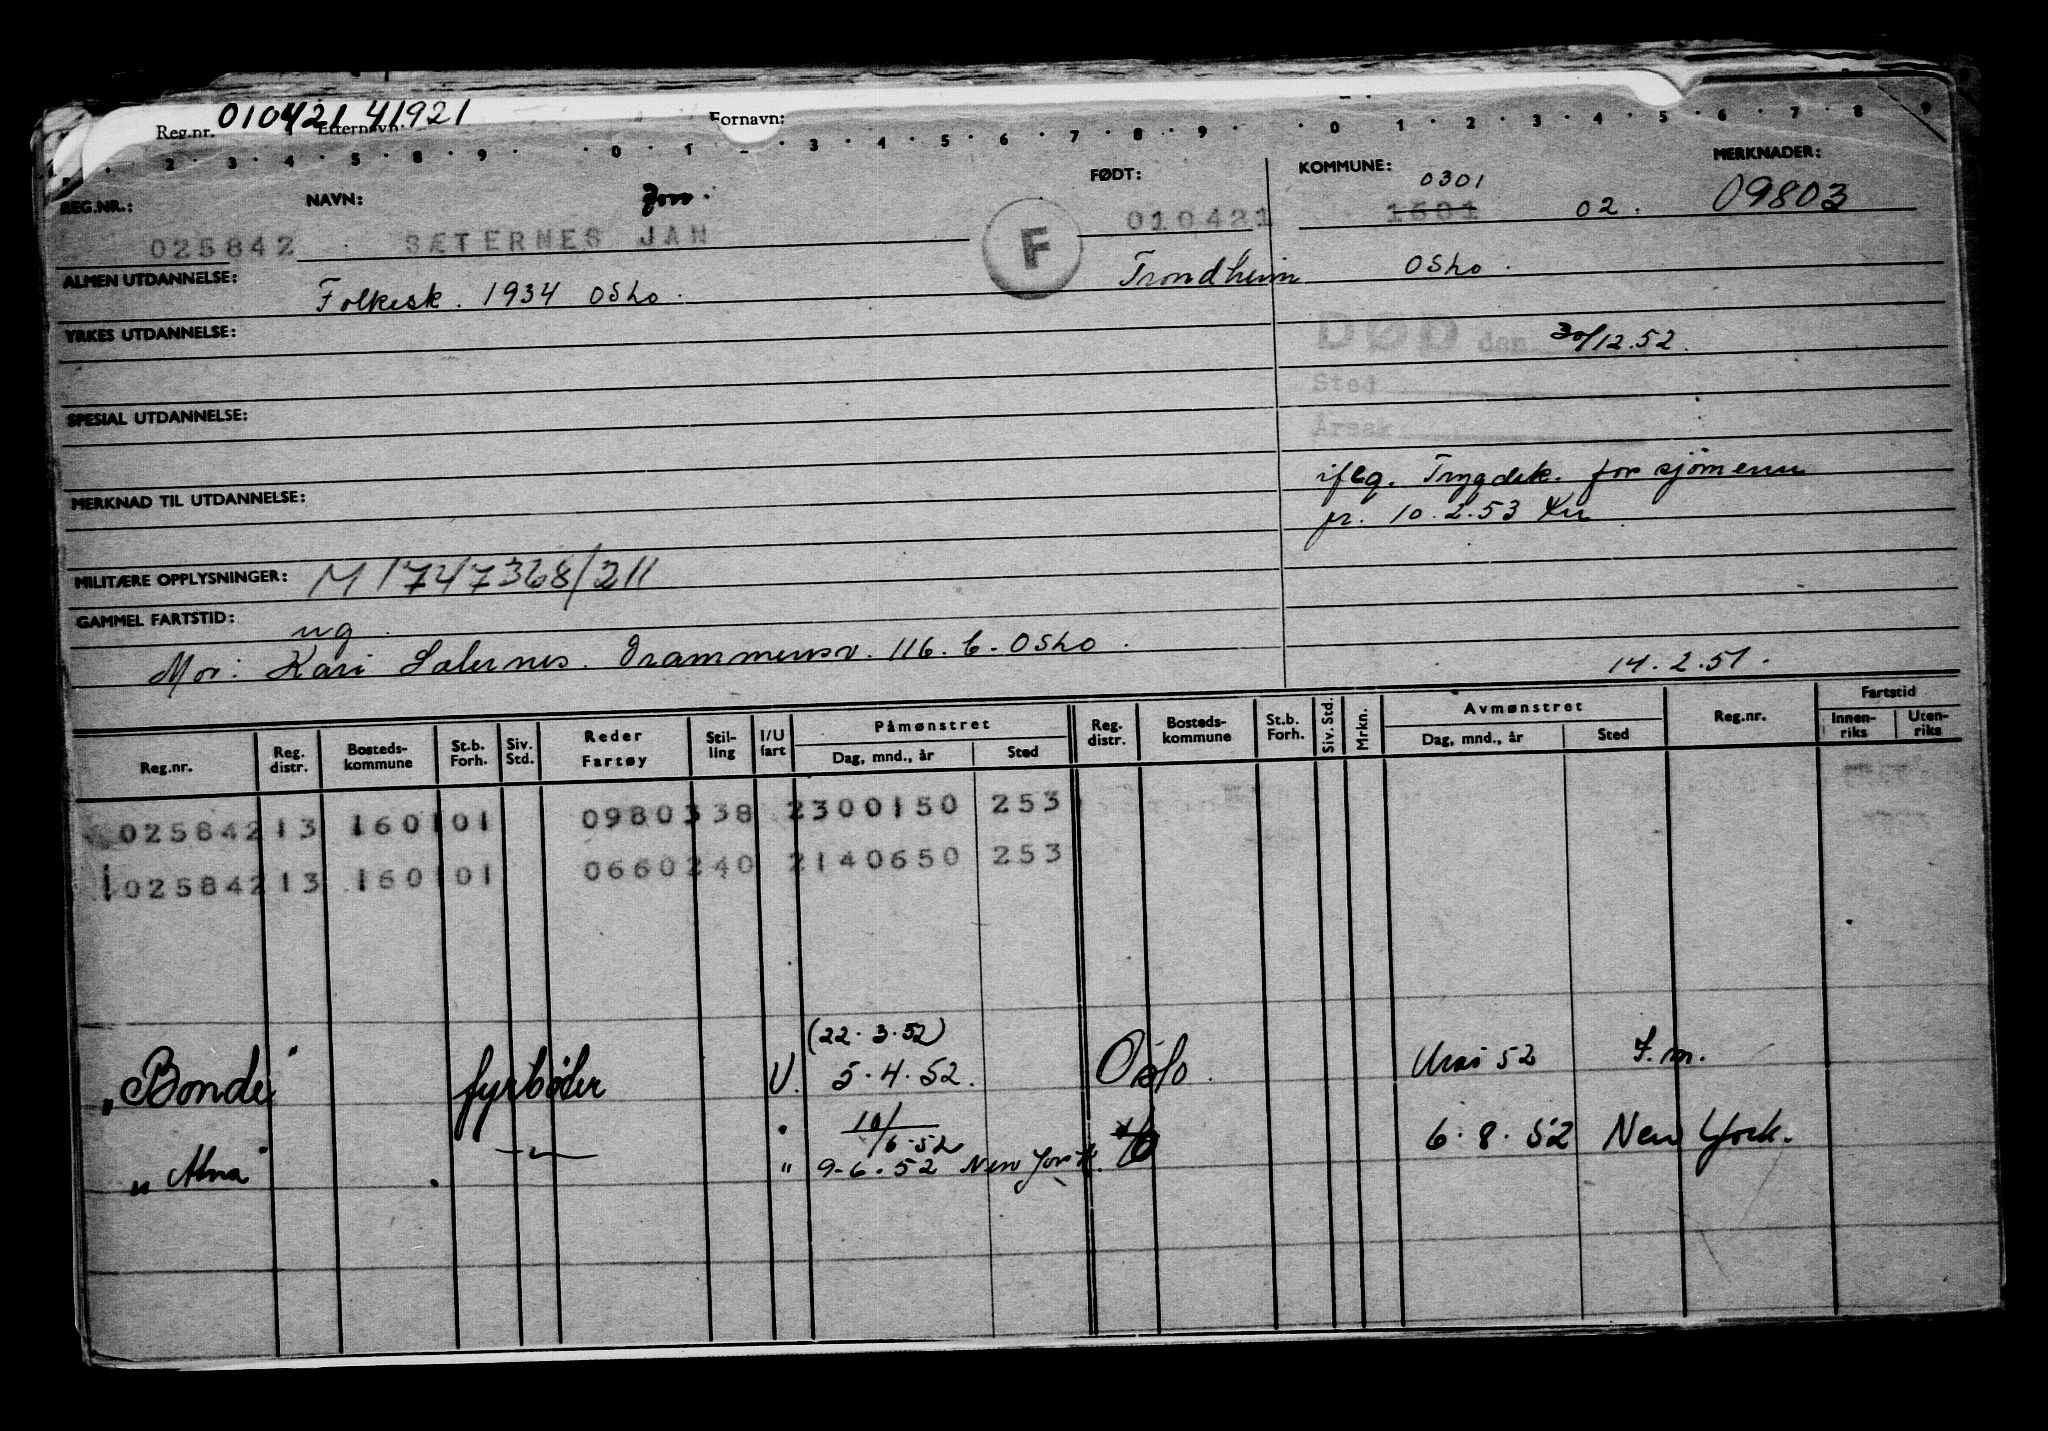 Reg.nr. 010421 41921 Etternavn: Fornavn:
2 · 3 · 4 · 5 · 8 · 9 · 0 · 1 · 3 · 4 · 5 · 6 · 7 · 8 · 9 · 0 · 1 · 2 · 3 · 4 · 5 · 6 · 7 · 8 · 9
REG.NR.: NAVN: Jon. FØDT: KOMMUNE: 0301 MERKNADER:
025842 SÆTERNES JAN F 010421 1601 02. 09803
ALMEN UTDANNELSE: Folkesk. 1934 Oslo. Trondheim Oslo.
YRKES UTDANNELSE: DØD den 30/12.52.
Sted
SPESIAL UTDANNELSE: Årsak
MERKNAD TIL UTDANNELSE: iflg. Trygdek. for sjömenn
pr. 10.2.53
MILITÆRE OPPLYSNINGER: M 1747368/211
GAMMEL FARTSTID: ug.
Mor: Kari Sæternes. Drammensv. 116.b. Oslo.
14.2.51.
Reg.nr. Reg. distr. Bosteds-kommune St.b. Forh. Siv. Std. Reder Fartøy Stil-ling I/U fart Påmønstret Dag, mnd., år Sted Reg. distr. Bosteds-kommune St.b. Forh. Siv. Std. Mrkn. Avmønstret Dag, mnd., år Sted Reg.nr. Fartstid Innen-riks Uten-riks
025842 13 1601 01 0980338 2300150 253
025842 13 1601 01 0660240 2140650 253
(22.3.52)
"Bonde" fyrbøter U. 5.4.52. Oslo. Mai 52 F.m.
" 10/6.52 6.8.52 New York.
"Alna" " 9-6.52 New York.